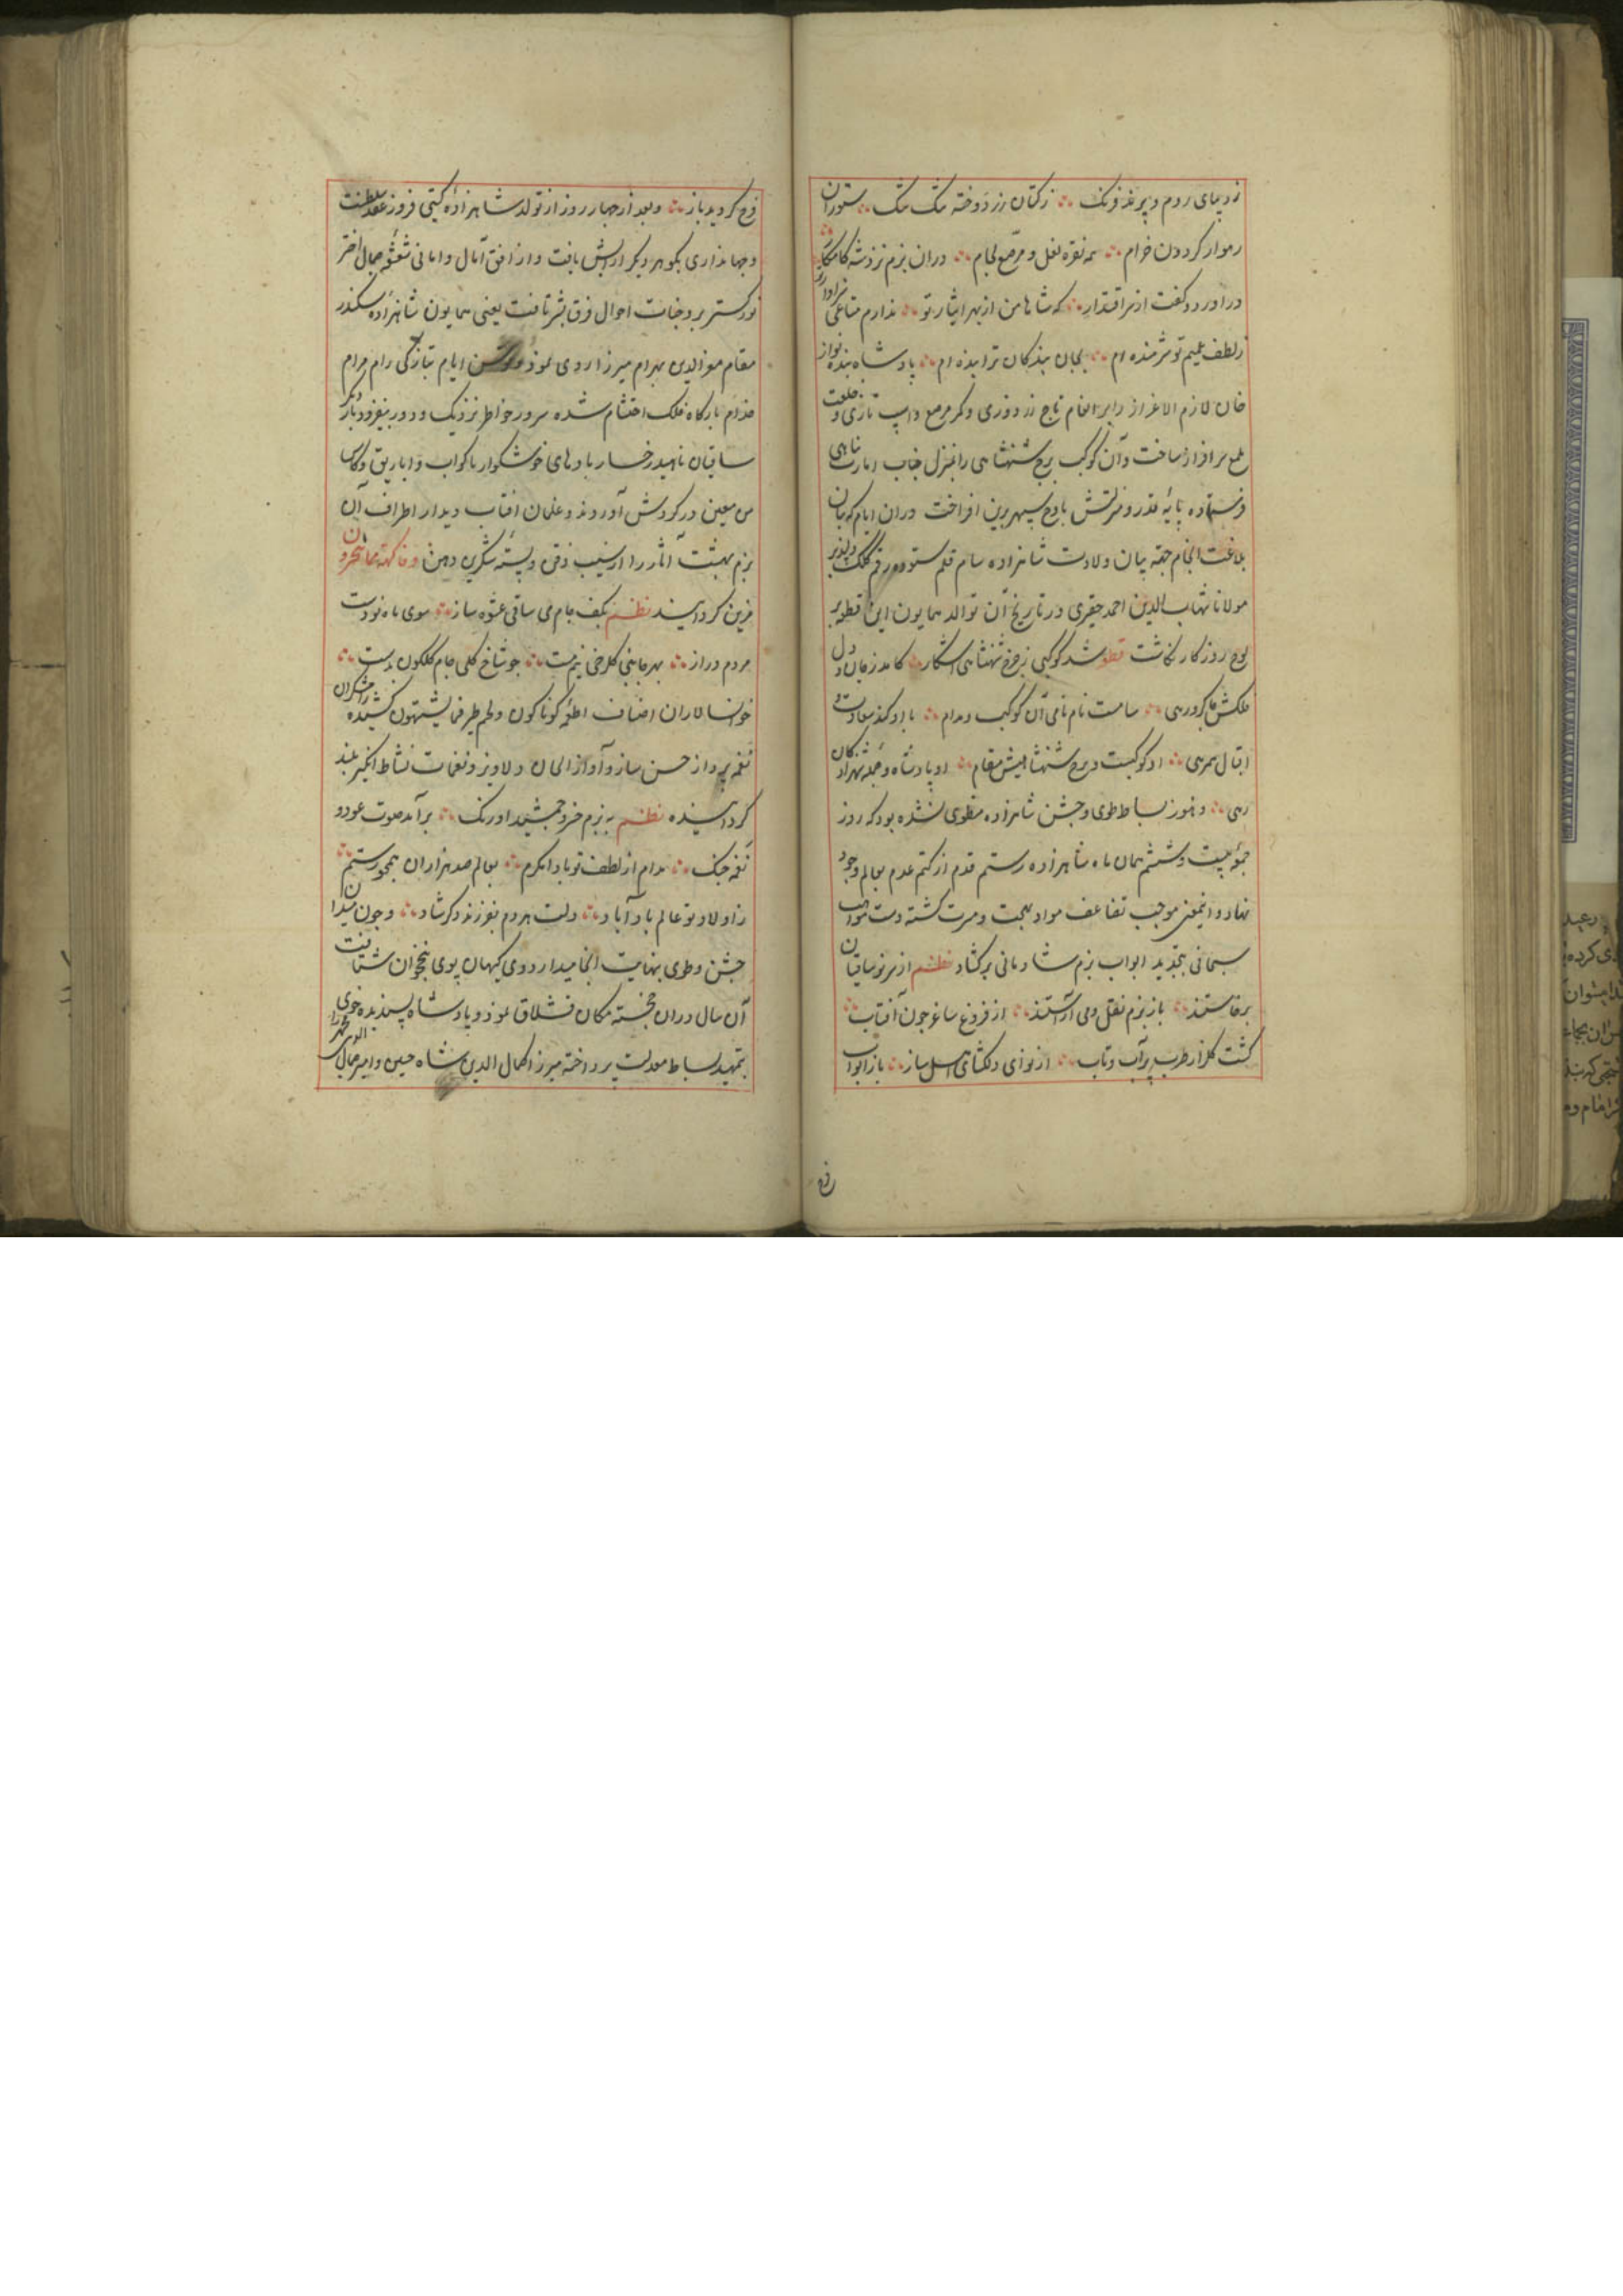 ز دیبای روم و پرند فرنک ∴ ز کتان زر دوخته تنک تنک ∴ ستوران
رهوار کردون خرام ∴ همه نقره نعل و مرصع لجام ∴ دران بزم نزد شه کامکار
درآورد و کفت از سر اقتدار ∴ که شاها من از بهر ایثار تو ∴ ندارم متاعی سزاوار تو
ز لطف عمیم تو شرمنده ام ∴ بجان بندکان ترا بنده ام ∴ پادشاه بنده نواز
خان لازم الاعزاز را بانعام تاج زر دوزی و کمر مرصع و اسپ تازی و خلعت
سرافراز ساخت و آن کوکب برج شهنشاهی را بمنزل جناب امارت پناهی
فرستاده پایه قدر و منزلتش باوج سپهر برین افراخت دران ایام که بنان
بلاغت انجام جهة بیان ولادت شاهزاده سام قلم ستوده رقم کلک دلپذیر
مولانا شهاب الدین احمد حقیری در تاریخ آن توالد همایون این قطعه بر
لوح روزکار نکاشت قطعه شد کوکبی ز برج شهنشاهی آشکار ∴ کامد ز جان و دل
فلکش چاکر و رهی ∴ سامست نام نامی آن کوکب و مدام ∴ بادا و کند سعادت و
اقبال همرهی ∴ او کوکبست و برج شهنشاهیش مقام ∴ او پادشاه و جمله شهزادکان
رهی ∴ و هنوز بساط طوی و جشن شاهزاده منطوی نشده بود که روز
جمعه بیست و ششم همان ماه شاهزاده رستم قدم از کتم عدم بعالم وجود
نهاد و اینمعنی موجب تضاعف مواد بهجت و مسرت کشته دست مواهب
سبحانی بتجدید ابواب بزم شادمانی برکشاد نظم از سر نو ساقیان
برخاستند ∴ باز بزم نقل و می آراستند ∴ از فروغ ساغر چون آفتاب ∴
کشت کلزار طرب پر آب و تاب ∴ از نوای دلکشای اهل ساز ∴ باز ابواب
فرح
فرح کردید باز ∴ و بعد از چهار روز از تولد شاهزاده کیتی فروز عقد سلطنت
و جهانداری بکوهر دیکر آرایش یافت و از افق آمال و امانی شعشعه جمال اختر
نور کستر بر وجنات احوال فرق بشر تافت یعنی همایون شاهزاده سکندر
مقام معز الدین بهرام میرزا روی نمود و ایام بتازکی رام مرام
خدام بارکاه فلک احتشام شده سرور خواطر نزدیک و دور بیفزود بار دیکر
ساقیان ناهید رخسار بادهای خوشکوار باکواب و اباریق و کاس
من معین در کردش آوردند و غلمان آفتاب دیدار اطراف آن
بزم بهشت آثار را از سیب ذقن و پسته شکرین دهن و فاکهة مما یتخیرون
مزین کردانیدند نظم بکف جام می ساقی عشوه ساز ∴ سوی ماه نو دست
مردم دراز ∴ بهر جانبی کلرخی نیم مست ∴ چو شاخ کلی جام کلکون بدست ∴
خوانسالاران اصناف اطعمه کوناکون و لحم طیر مما یشتهون کشیده رامشکران
نغمه پرداز حسن ساز و آواز الحان دلاویز و نغمات نشاط انکیز بلند
کردانیده نظم به بزم خسرو جمشید اورنک ∴ برآمد صوت عود و
نغمه چنک ∴ مدام از لطف تو بادا مکرم ∴ بعالم صد هزاران همچو رستم ∴
ز اولاد تو عالم باد آباد ∴ دلت هر دم بفرزند دکر شاد ∴ و چون میدان
جشن و طوی بنهایت انجامید اردوی کیهان پوی بنخجوان شتافت
آن سال دران خجسته مکان قشلاق نمود و پادشاه پسندیده خوی
بتمهید بساط معدلت پرداخته میرزا کمال الدین شاه حسین و امیر جمال الدین محمد را